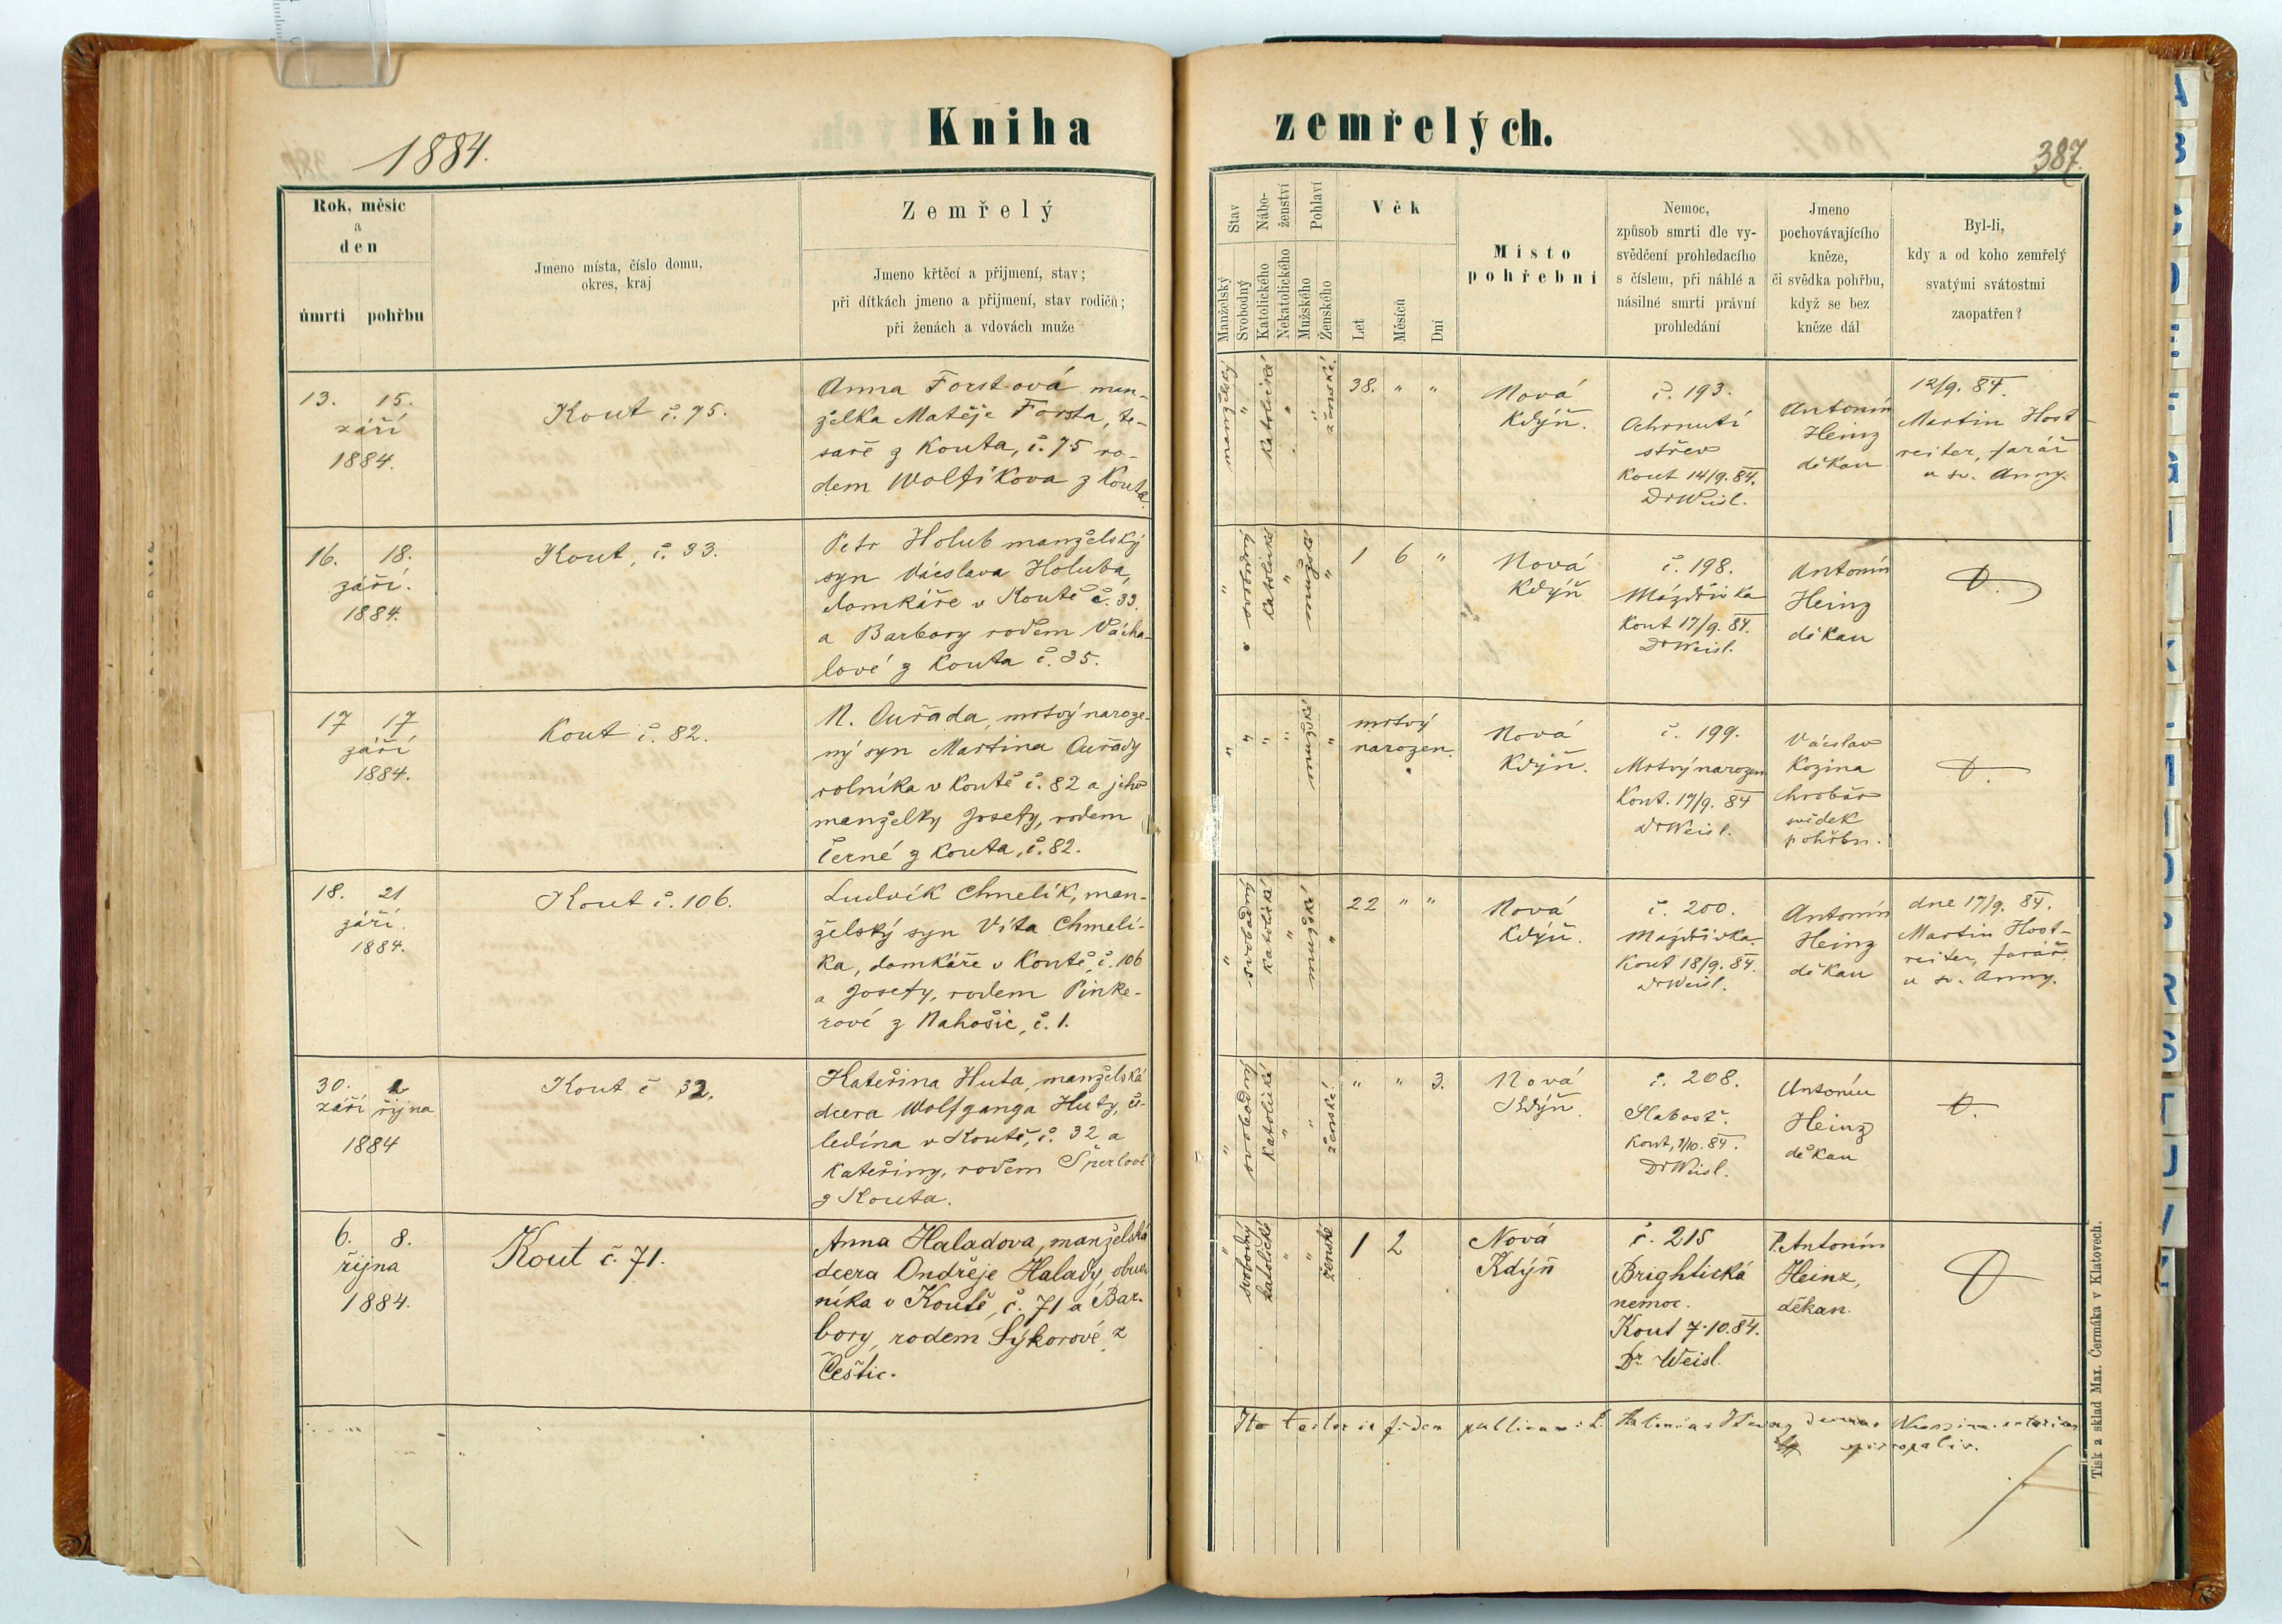 Kniha zemřelých.
1884.
387.
Rok, měsíc
a
den
úmrtí pohřbu
Jmeno místa, číslo domu,
okres, kraj
Zemřelý
Jmeno křtěcí a přijmení, stav;
při dítkách jmeno a přijmení, stav rodičů;
při ženách a vdovách muže
Stav
Manželský
Svobodný
Nábo-
ženství
Katolického
Nekatolického
Pohlaví
Mužského
Ženského
Věk
Let
Měsíců
Dní
Místo
pohřební
Nemoc,
způsob smrti dle vy-
svědčení prohledacího
s číslem, při náhlé a
násilné smrti právní
prohledání
Jmeno
pochovávajícího
kněze,
či svědka pohřbu,
když se bez
kněze dál
Byl-li,
kdy a od koho zemřelý
svatými svátostmi
zaopatřen?
13. 15.
září
1884.
Kout č. 75.
Anna Forstová man-
želka Matěje Forsta, te-
saře z Kouta, č. 75 ro-
dem Wolfikova z Kouta.
manželský
"
katolické
"
"
ženské.
38. " "
Nová
Kdýň.
č. 193.
Ochrnutí
střev
Kout 14/9. 84.
Dr Weisl.
Antonín
Heinz
děkan
12/9. 84.
Martin Host-
reiter, farář
u sv. Anny.
16. 18.
září.
1884.
Kout, č. 33.
Petr Holub manželský
syn Václava Holuba,
domkáře v Koutě č. 33.
a Barbory rodem Vácha-
lové z Kouta č. 35.
"
svobodný
katolické
"
mužské
"
1 6 "
Nová
Kdýň
č. 198.
Mázdřivka
Kout 17/9. 84.
Dr Weisl.
Antonín
Heinz
děkan
17 17
září
1884.
Kout č. 82.
N. Ouřada, mrtvý naroze-
ný syn Martina Ouřady
rolníka v Koutě č. 82 a jeho
manželky Josefy, rodem
Černé z Kouta, č. 82.
"
"
"
"
mužské
"
mrtvý
narozen.
Nová
Kdýň.
č. 199.
Mrtvý narozen
Kout. 17/9. 84
Dr Weisl.
Václav
Kozina
hrobař
svědek
pohřbu.
18. 21
září.
1884.
Kout č. 106.
Ludvík Chmelík, man-
želský syn Víta Chmelí-
ka, domkáře v Koutě, č. 106
a Josefy, rodem Pinke-
rové z Nahošic, č. 1.
"
svobodný
katolické
"
mužské
"
22 " "
Nová
Kdýň.
č. 200.
Mázdřivka.
Kout 18/9. 84.
Dr Weisl.
Antonín
Heinz
děkan
dne 17/9. 84.
Martin Host-
reiter, farář
u sv. Anny.
30. 2
září října
1884
Kout č 32.
Kateřina Huta, manželská
dcera Wolfganga Huty, če-
ledína v Koutě, č. 32 a
Kateřiny, rodem
z Kouta.
"
svobodný
katolické
"
"
ženské.
" " 3.
Nová
Kdýň.
č. 208.
Slabosť.
Kout, 1/10. 84.
Dr Weisl.
Antonín
Heinz
děkan
6. 8.
října
1884.
Kout č. 71.
Anna Haladova, manželská
dcera Ondřeje Halady, obuv-
níka v Koutě, č. 71 a Bar-
bory, rodem Sýkorové z
Češtic.
"
svobodný
katolické
"
"
ženské
1 2
Nová
Kdýň
č. 215
Brightická
nemoc.
Kout 7.10.84.
Dr. Weisl.
P. Antonín
Heinz,
děkan.
Ita
episcopalis.
Tisk a sklad Max. Čermáka v Klatovech.